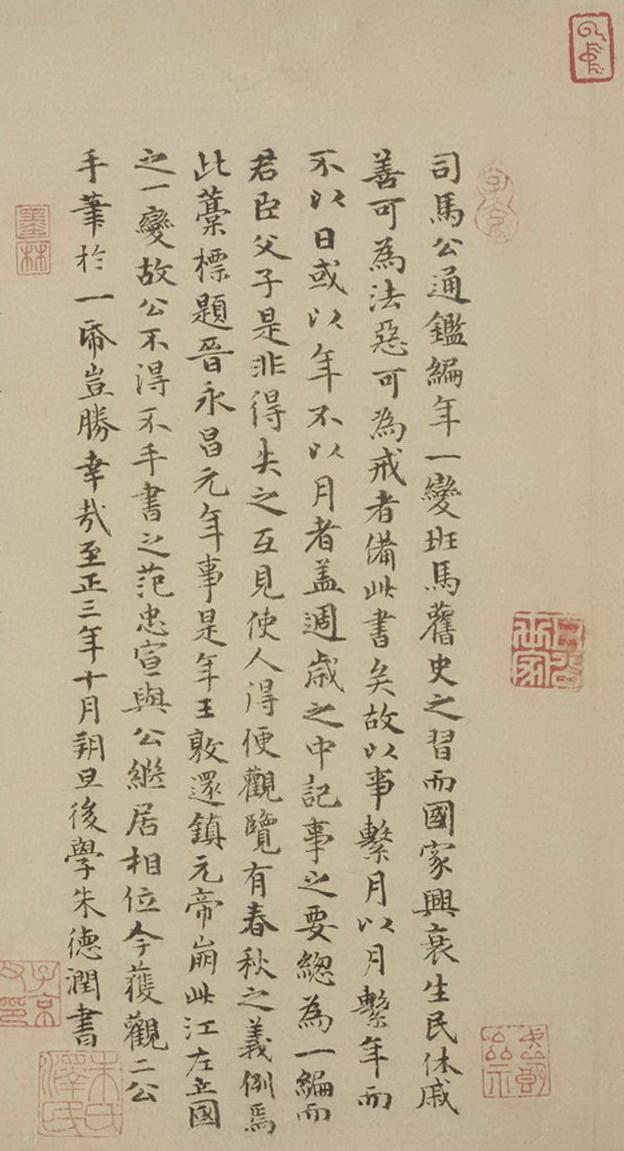 司馬公通鑑編年一變班馬舊史之習而國家興衰生民休戚
善可為法惡可為戒者備此書矣故以事繫月以月繫年而
不以日或以年不以月者蓋週歲之中記事之要總為一編而
君臣父子是非得失之互見使人得便觀覽有春秋之義例焉
此藁標題晉永昌元年事是年王敦還鎮元帝崩此江左立國
之一變故公不得不手書之范忠宣與公繼居相位今獲觀二公
手筆於一帋豈勝幸哉至正三年十月朔旦後學朱德潤書
子京
墨林
朱氏澤民